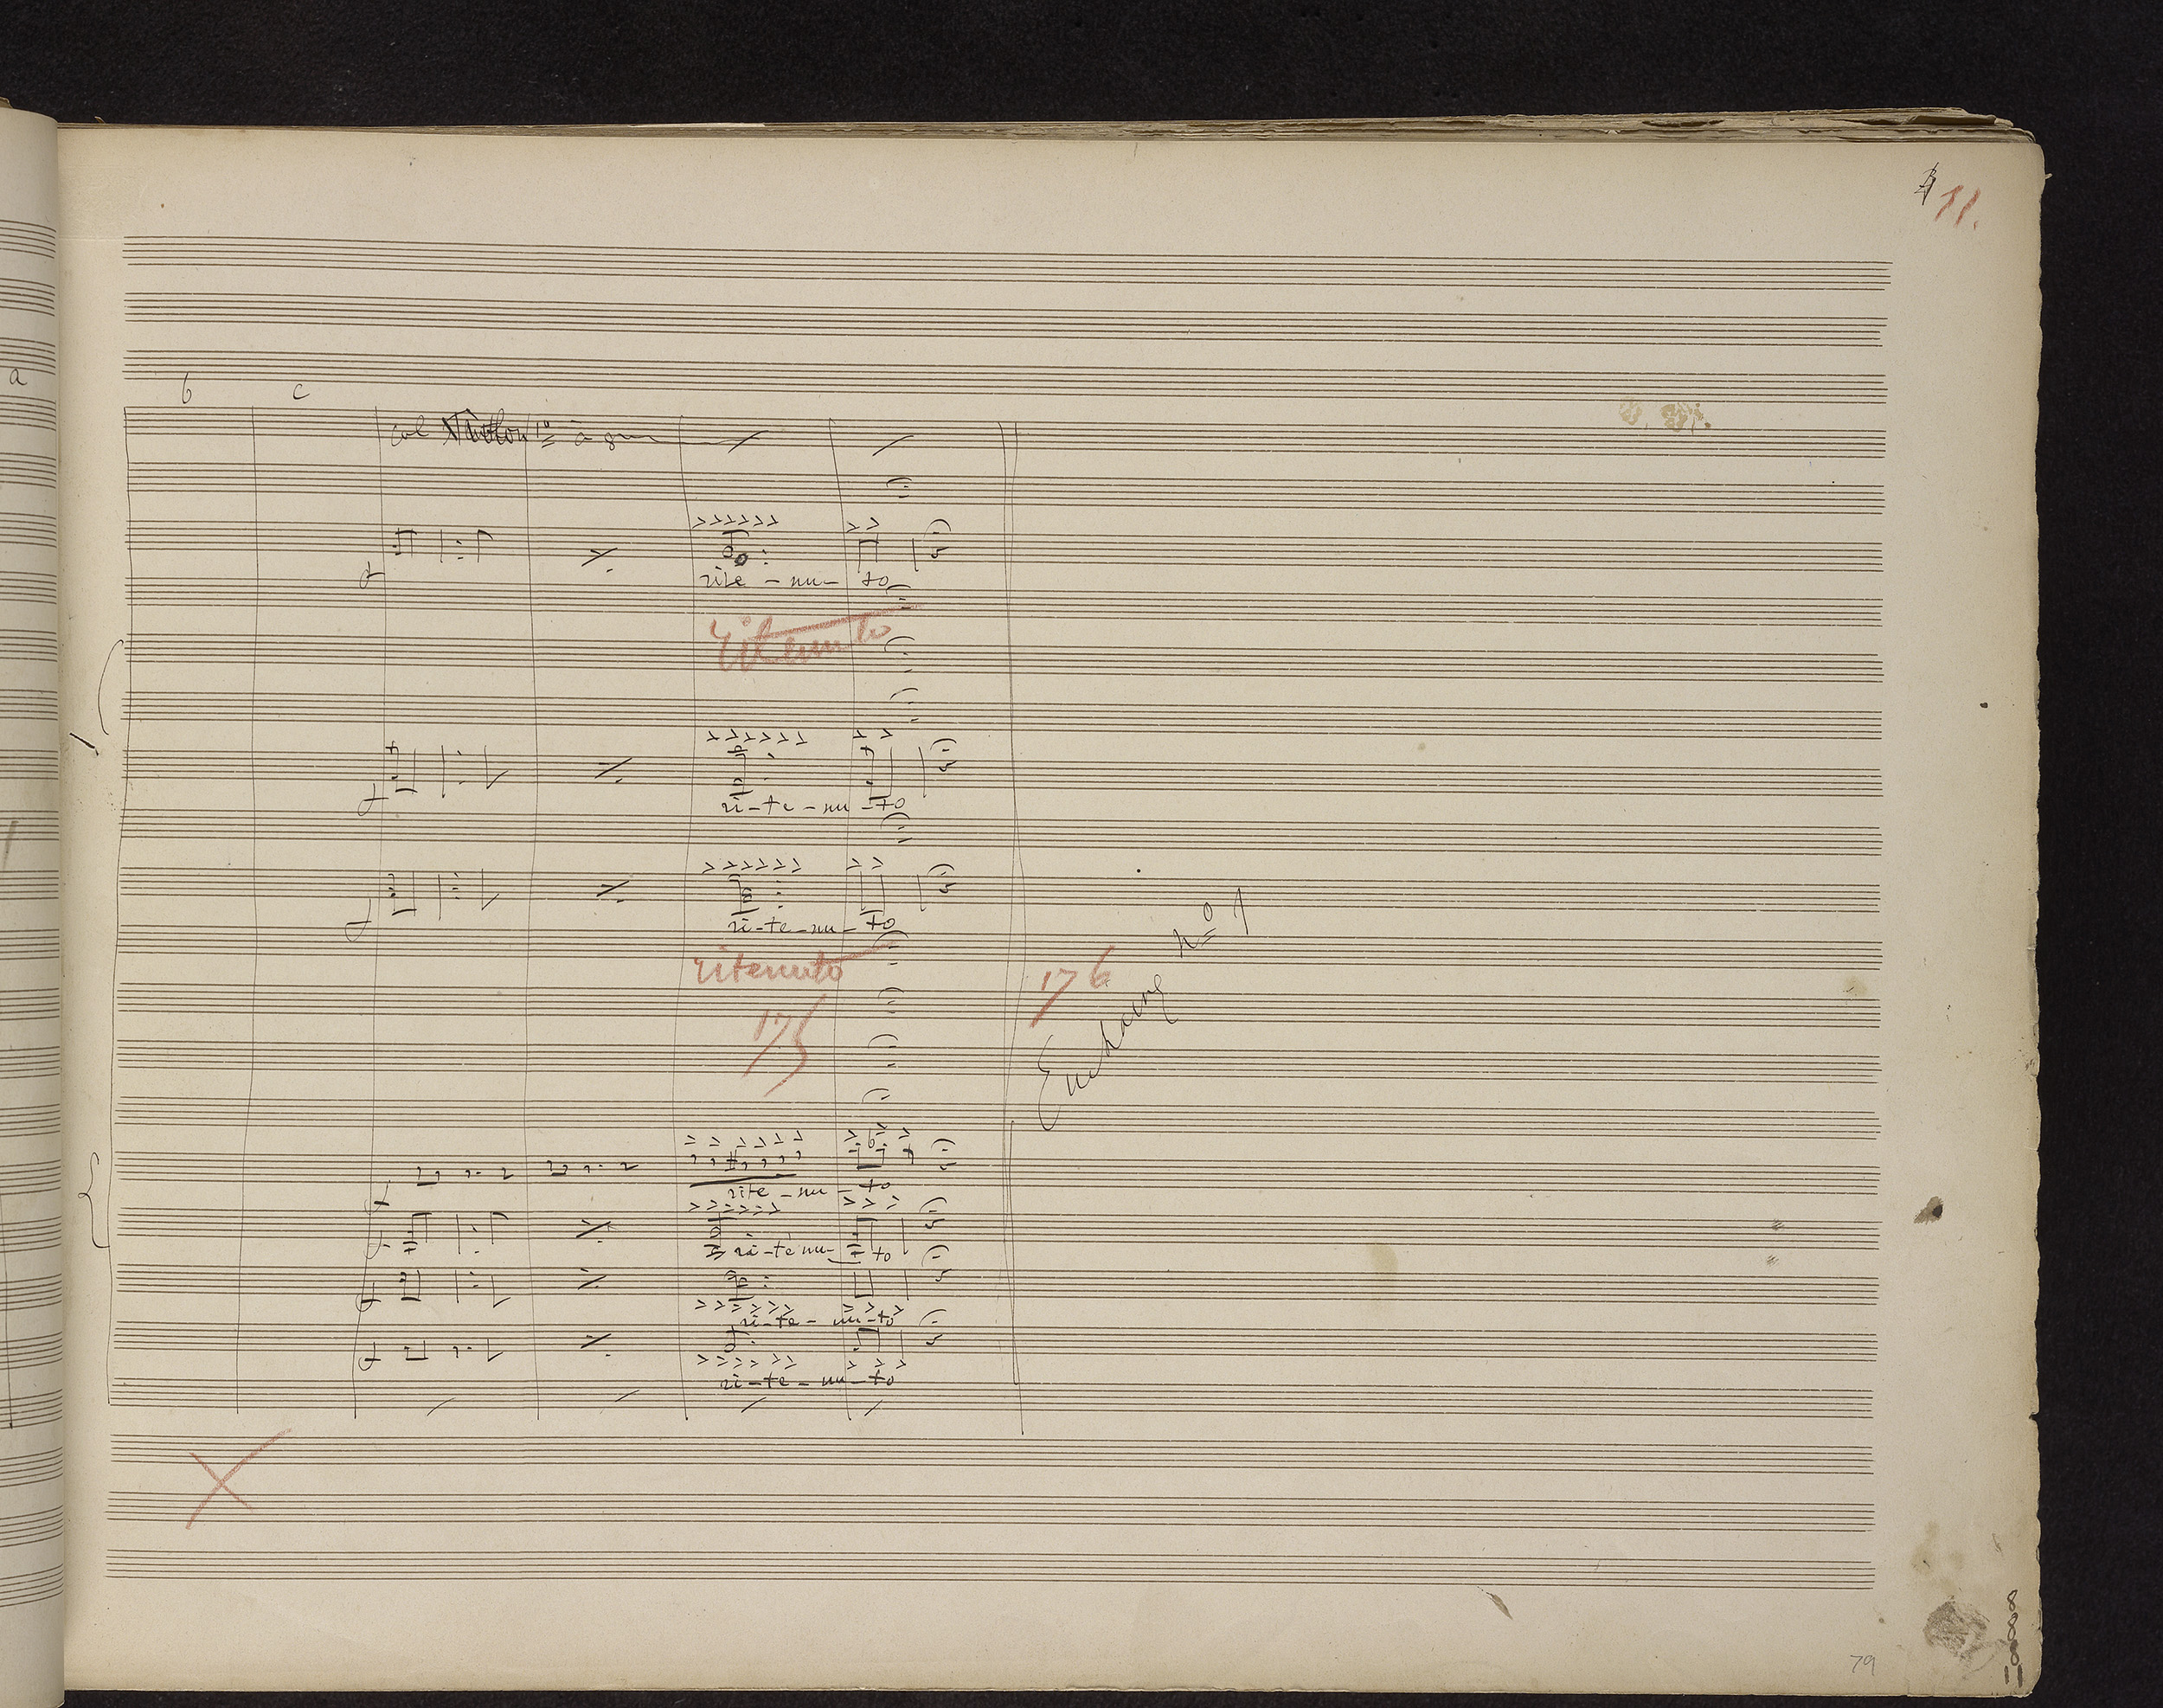 11.
a
b c
col Violon 1º à 8va
rite - nu - to
ritenuto
ri - te - nu - to
ri - te - nu - to
ritenuto
175
176
Enchainez nº 1
rite - nu - to
ri - te nu - to
ri - te - nu - to
ri - te - nu - to
8
8
8
11
79